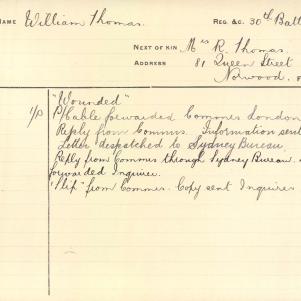 NAME William Thomas. REG. &C. 30th Batt
NEXT OF KIN Mrs R. Thomas.
ADDRESS 81 Queen Street
Norwood,
"Wounded"
1/p Cable forwarded Commr London
Reply from Commr. Information sent
Letter despatched to Sydney Bureau.
Reply from Commr through Sydney Bureau.
forwarded Inquirer.
"Slip" from Commr. Copy sent Inquirer